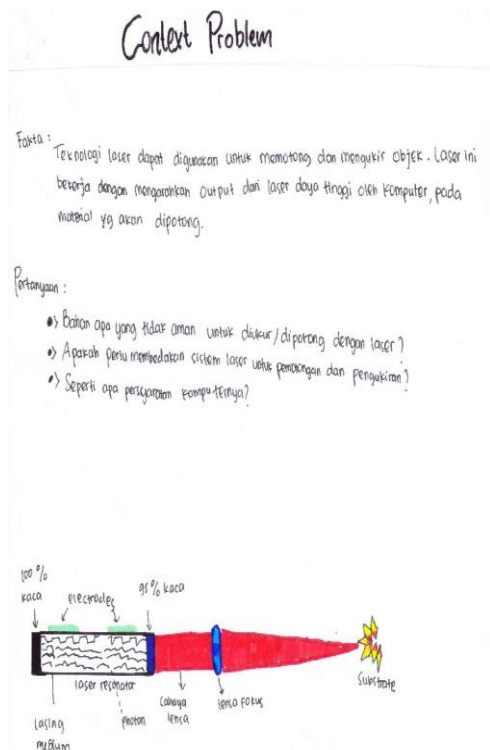 Context Problem
Fakta :
Teknologi laser dapat digunakan untuk memotong dan mengukir objek. Laser ini
bekerja dengan mengarahkan output dari laser daya tinggi oleh komputer, pada
material yg akan dipotong.
Pertanyaan :
•) Bahan apa yang tidak aman untuk diukur/dipotong dengan laser?
•) Apakah perlu membedakan sistem laser untuk pemotongan dan pengukiran?
•) Seperti apa persyaratan komputernya?
100 %
kaca
electrodes
95 % kaca
laser resonator
lasing
medium
photon
Cahaya
lensa
lensa fokus
Substrate